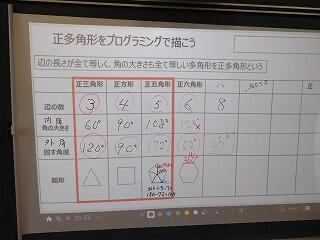 正多角形をプログラミングで描こう
辺の長さが全て等しく、角の大きさも全て等しい多角形を正多角形という
正三角形 正方形 正五角形 正六角形 八
辺の数 3 4 5 6 8
内角
角の大きさ 60° 90° 108° 120°
外角
回す角度 120° 90° 72° 60° 45°
図形
360÷5=72